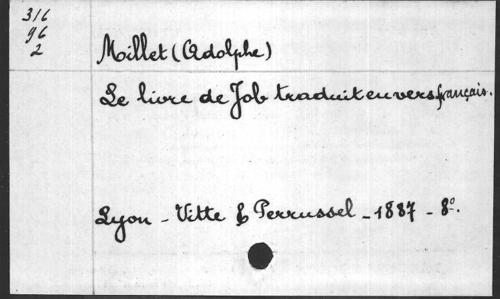 316
96
2
Moillet (Adolphe)
Le livre de Job traduit en vers français.
Lyon - Vitte & Perrussel - 1887 - 8°.